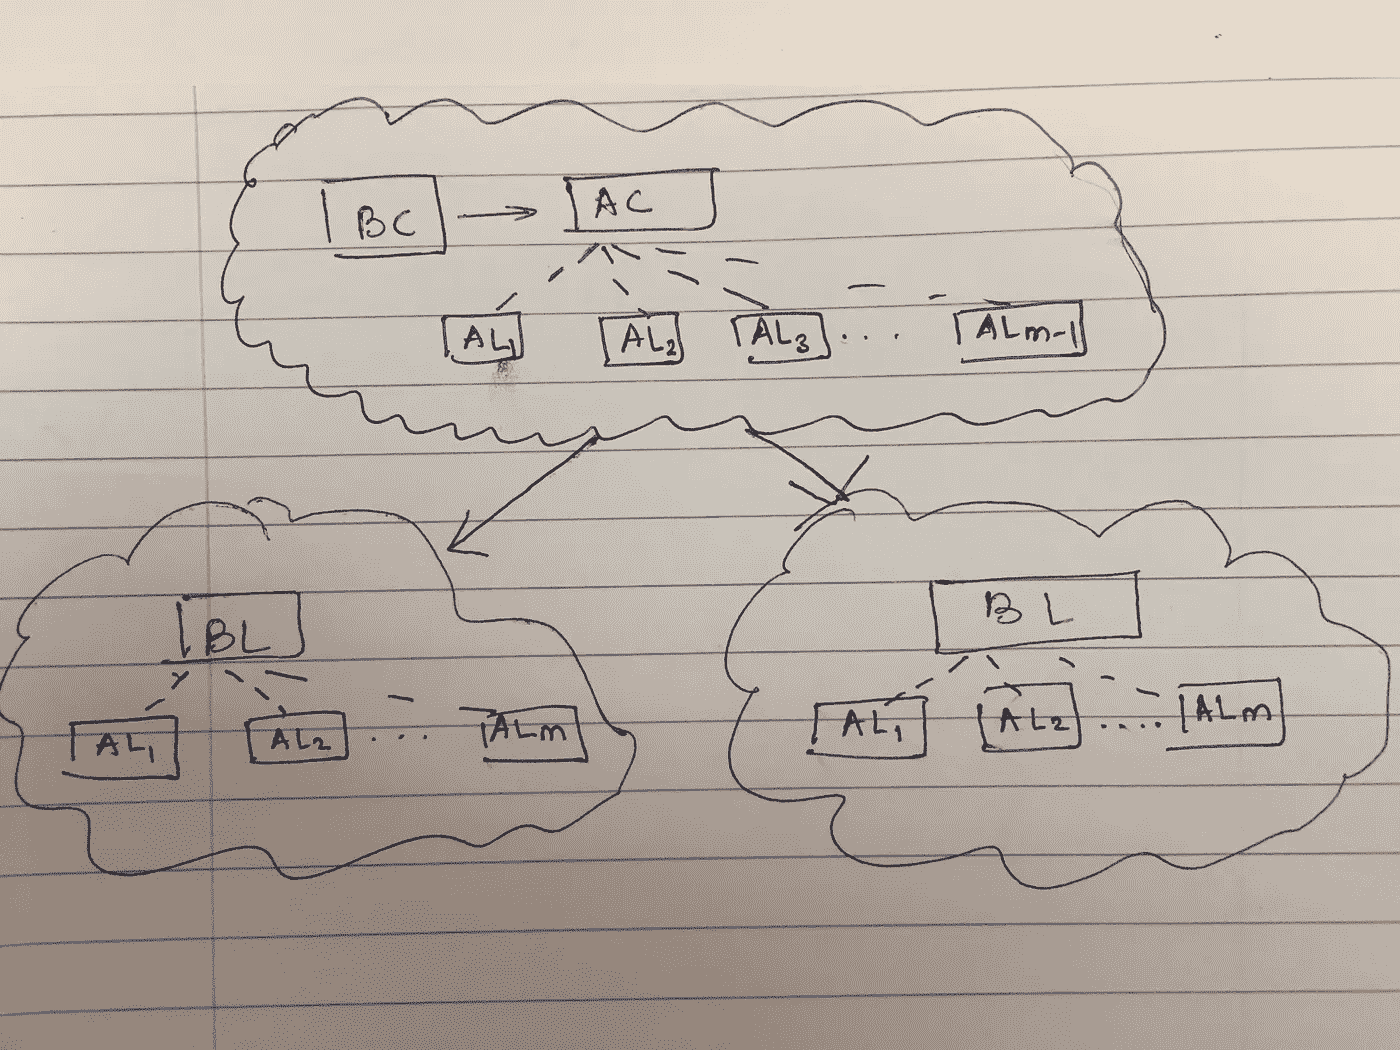 BC AC
AL1 AL2 AL3 ... ALm-1
BL BL
AL1 AL2 ... ALm AL1 AL2 .... ALm